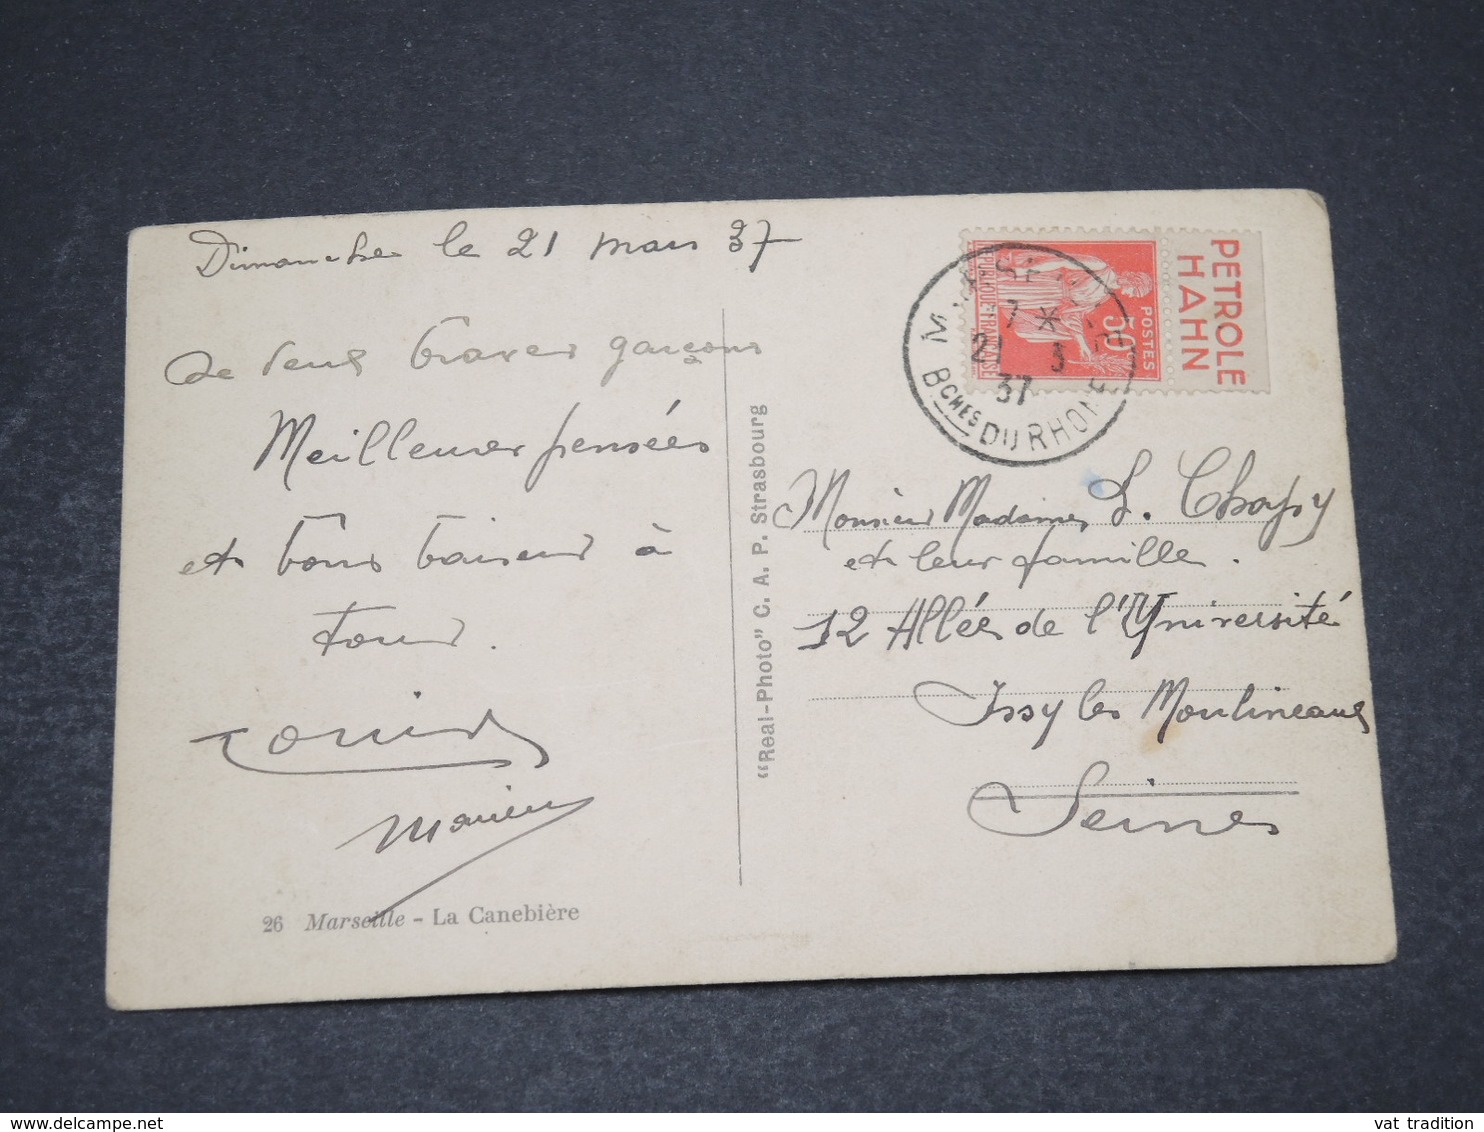 Dimanche le 21 mars 37
de deux braves garçons
Meilleures pensées
et bons baisers à
tous.
Louis
Marius
26 Marseille - La Canebière
"Real-Photo" C. A. P. Strasbourg
PETROLE
HAHN
POSTES
50
REPUBLIQUE FRANÇAISE
MARSEILLE
7 *
21 3
37
BCHES DU RHONE
Monsieur Madame L. Chapy
et leur famille.
12 Allée de l'Université
Issy les Moulineaux
Seine
vat tradition
delcampe.net